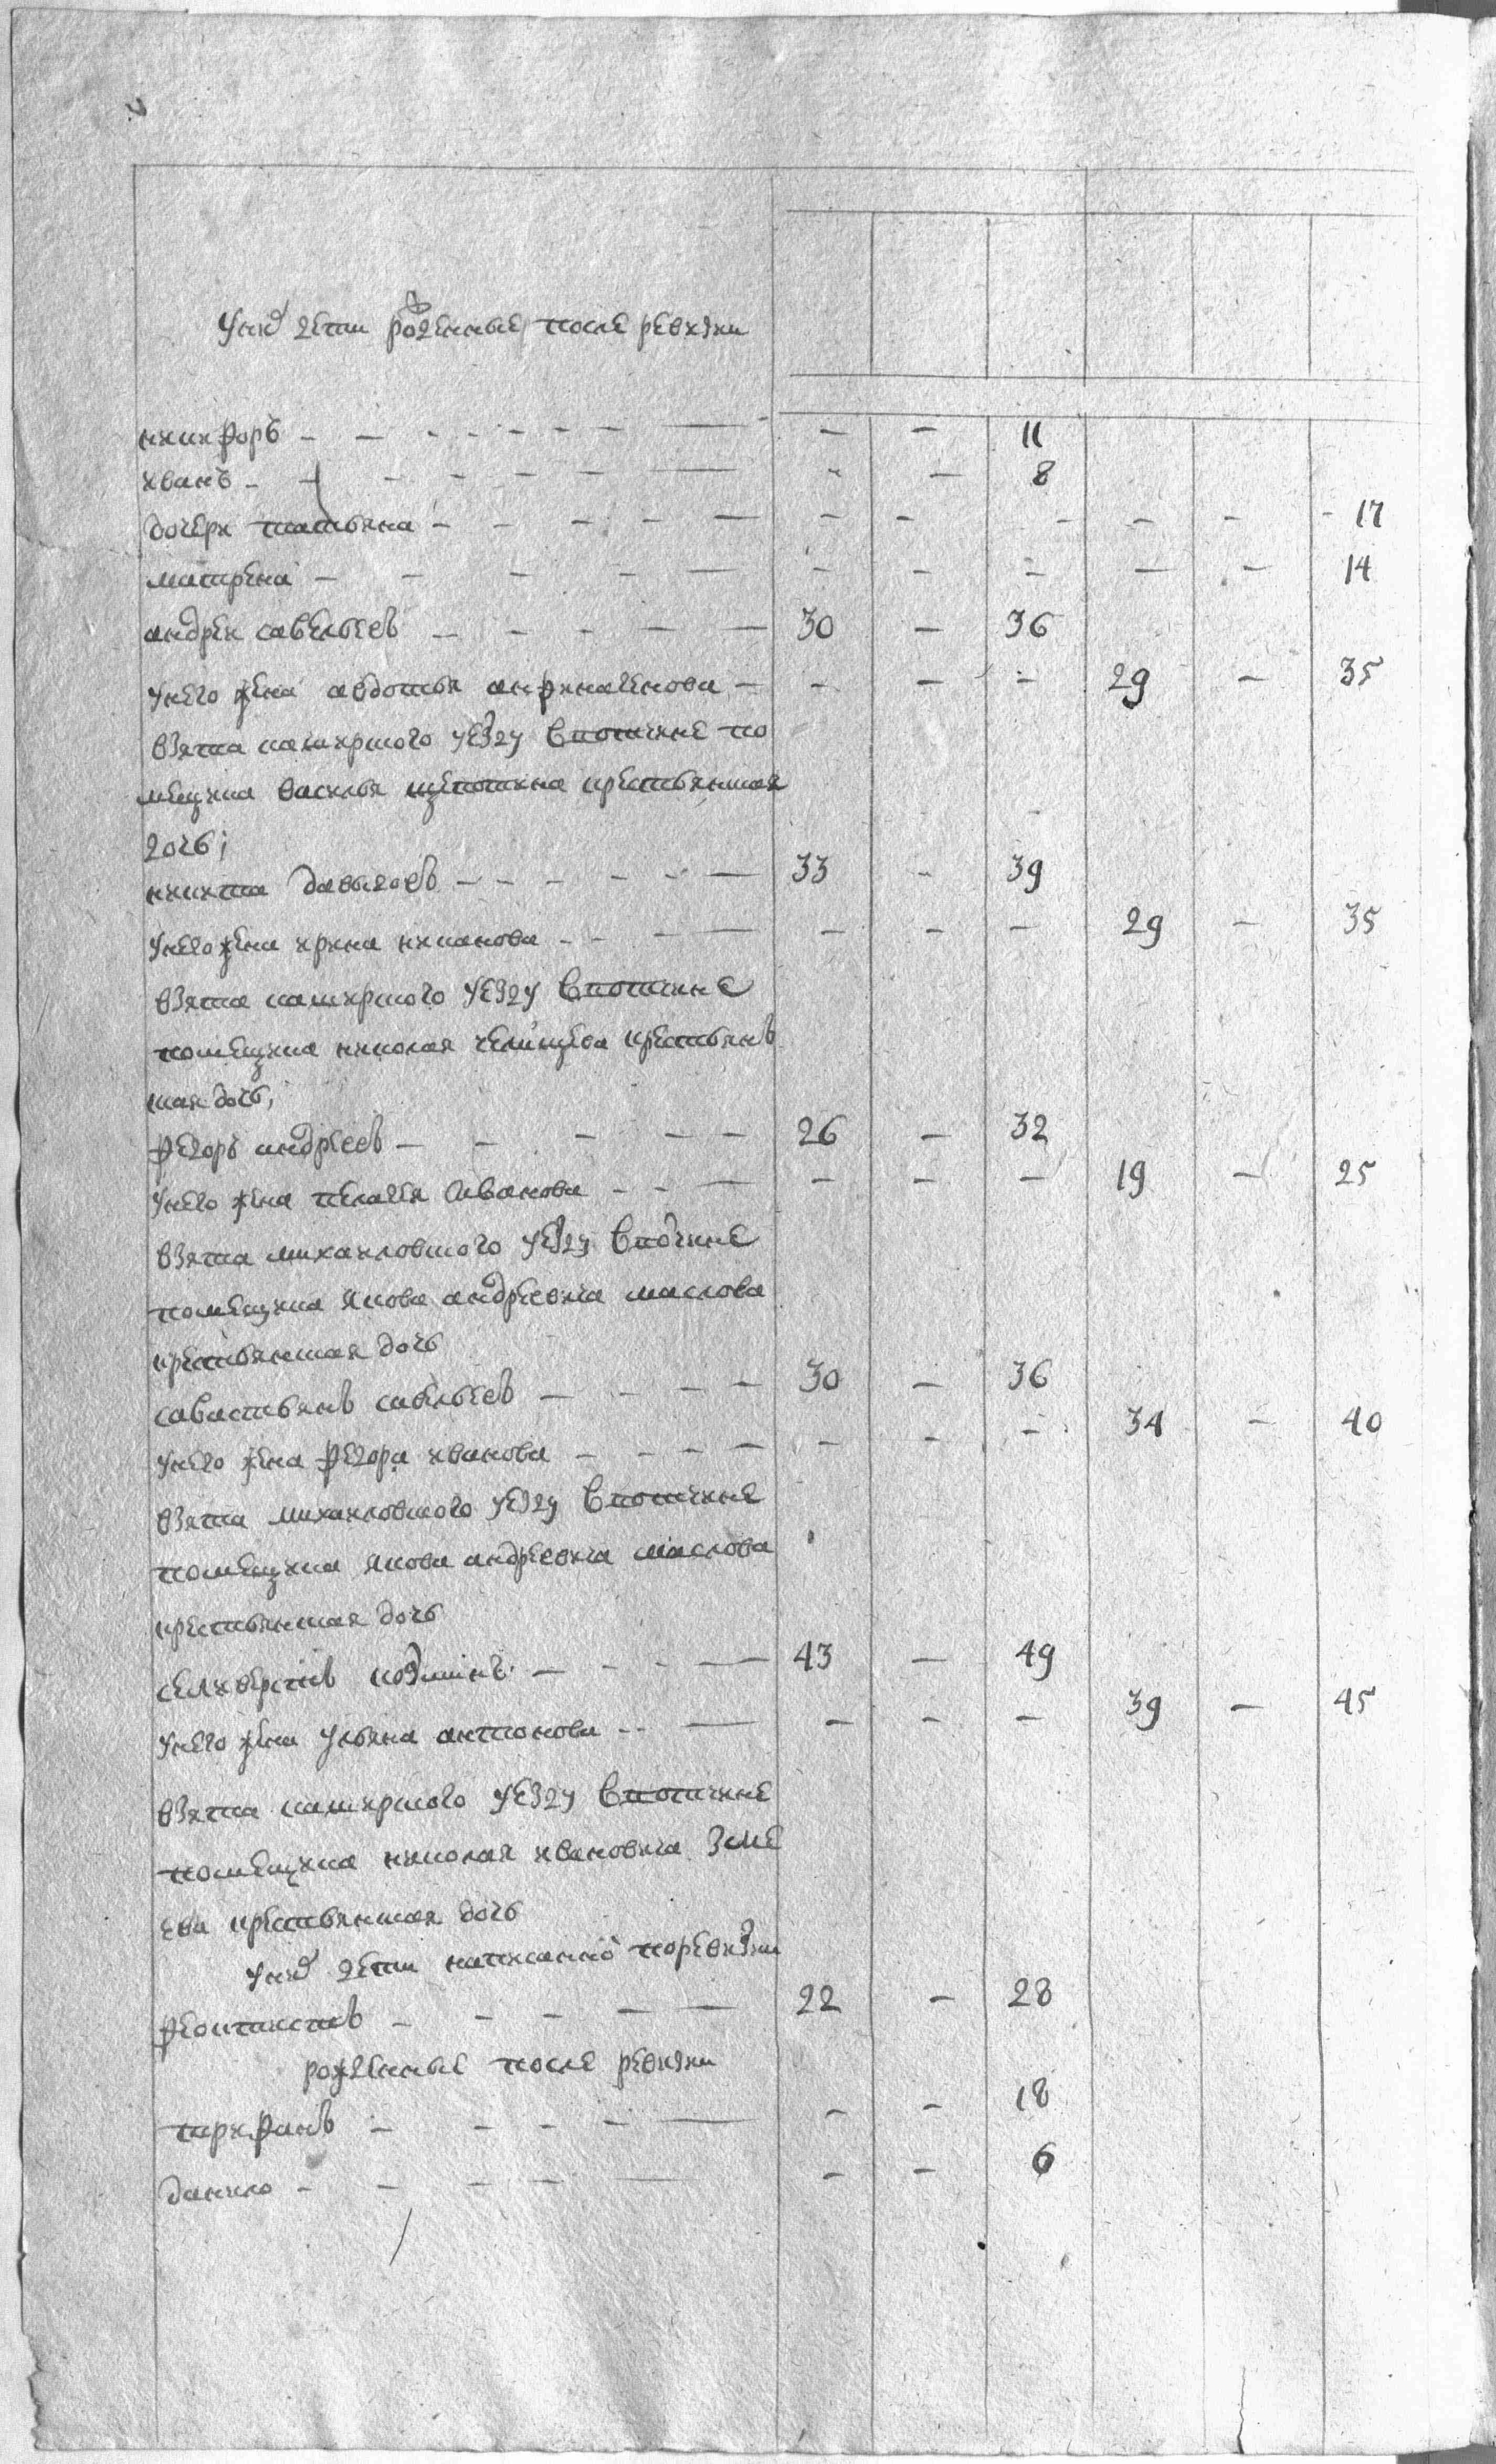 Уних дети рожденные после ревизии
никифоръ - - - - - - - - - 11
иванъ - - - - - - - - 8
дочери татьяна - - - - - - - - - - - 17
матрена - - - - - - - - - - 14
андреи савельевъ - - - - - 30 - 36
унего жена авдотья - - - - 29 - 35
взята каширского уезду вотчине по
мещика василья щепотина крестьянская
дочь;
никита давыдовъ - - - - - - 33 - 39
унего жена ирина - - - - - - - 29 - 35
взята каширского уезду вотчине
помещика николая челищева крестьянъ
ская дочь,
Федоръ андреевъ - - - - - 26 - 32
унего жена пелагея иванова - - - - - - 19 - 25
взята михаиловского уезду вотчине
помещика якова андреевича маслова
крестьянская дочь
савастьянъ савельевъ - - - - 30 - 36
унего жена федора иванова - - - - - - - 34 - 40
взята михаиловского уезду вотчине
помещика якова андреевича маслова
крестьянская дочь
селиверстъ козминъ - - - - 43 - 49
унего жена ульяна антонова - - - - - - 39 - 45
взята каширского уезду вотчине
помещика николая ивановича Зме
ева крестьянская дочь
Уних дети написанные поревизии
феоктистъ - - - - - 22 - 28
рожденные после ревизии
трифанъ - - - - - - - 18
данило - - - - - - - 6